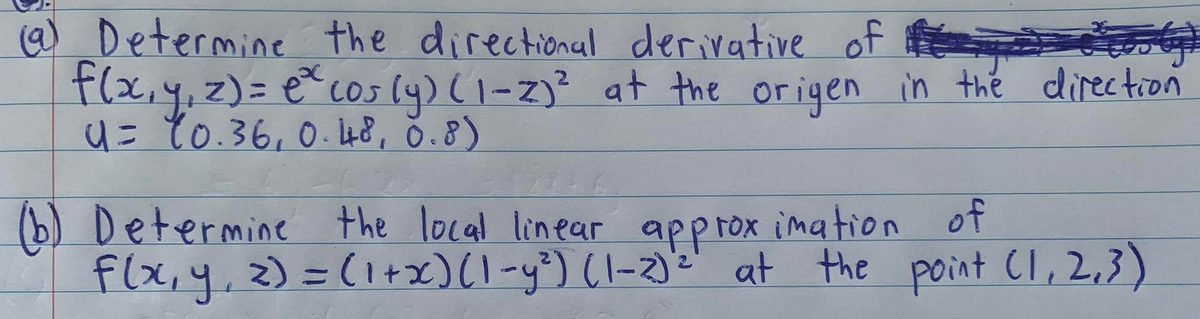 (a) Determine the directional derivative of
f(x,y,z)= eˣ cos(y)(1-z)² at the origen in the direction
u= (0.36, 0.48, 0.8)
(b) Determine the local linear approximation of
f(x,y,z)=(1+x)(1-y²)(1-z)² at the point (1,2,3)